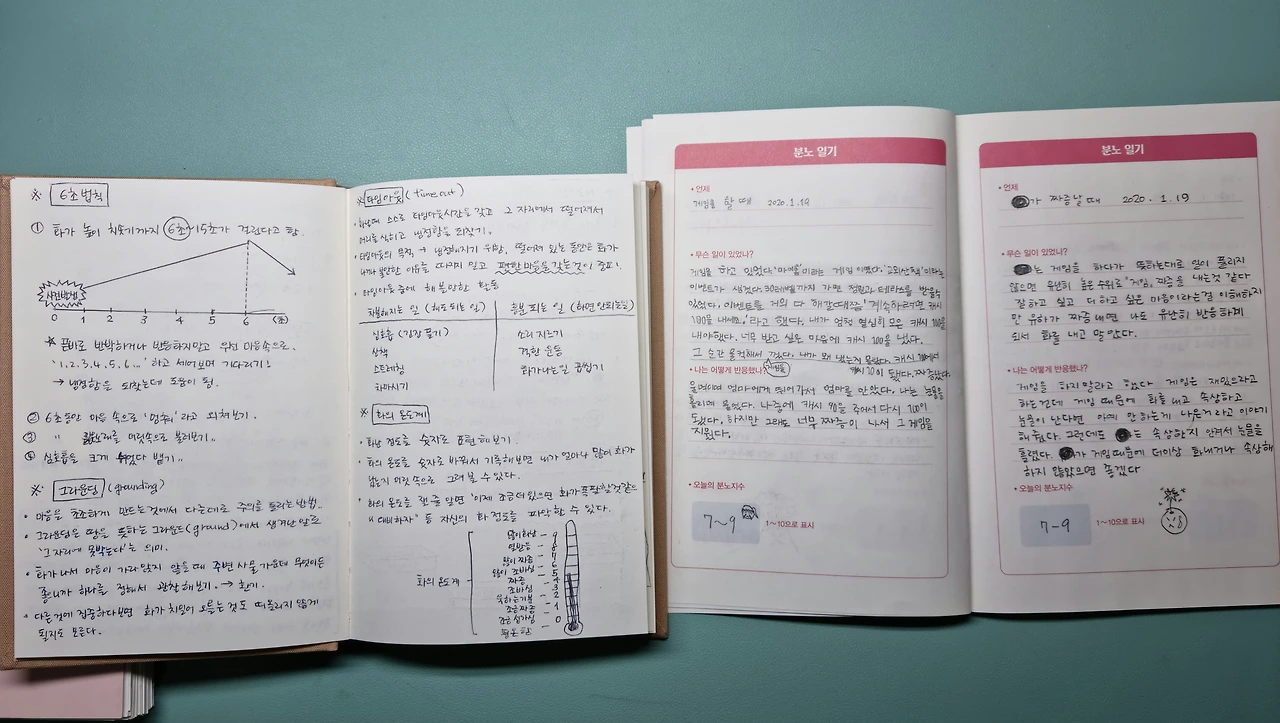 ※ 6초법칙
① 화가 높이 치솟기까지 6초~15초가 걸린다고 함.
사건발생!
0 1 2 3 4 5 6 (초)
※ 곧바로 반박하거나 반응하지말고 우선 마음속으로.
'1, 2, 3, 4, 5, 6 ...' 하고 세어보며 기다리기!
→ 냉정함을 되찾는데 도움이 됨.
② 6초동안 마음 속으로 '멈춰!' 라고 외쳐보기.
③ 〃 노래를 머릿속으로 불러보기..
④ 심호흡을 크게 쉬었다 뱉기..
※ 그라운딩 (grounding)
• 마음을 초조하게 만드는것에서 다른데로 주의를 돌리는 방법.
• 그라운딩은 땅을 뜻하는 그라운드(ground)에서 생겨난 말로
'그 자리에 못박는다'는 의미.
• 화가 나서 마음이 가라앉지 않을 때 주변 사물 가운데 무엇이든
좋으니까 하나를 정해서 관찰해보기. → 환기.
• 다른것에 집중하다보면 화가 치밀어 오르는 것도 떠올리지 않게
될지도 모른다.
※ 타임아웃 (time out)
• 화날때 스스로 타임아웃시간을 갖고 그 자리에서 떨어져서
머리를 식히고 냉정함을 되찾기.
• 타임아웃의 목적 → 냉정해지기 위함, 떨어져 있는 동안은 화가
나거나 불안한 이유를 따지지 말고 편한 마음을 갖는것이 중요!
• 타임아웃 중에 해볼만한 활동
차분해지는 일 (해도 되는 일) 흥분되는 일 (하면 안되는일)
심호흡 (긴장 풀기) 소리 지르기
산책 격한 운동
스트레칭 화가나는일 곱씹기
차마시기
※ 화의 온도계
• 화난 정도를 숫자로 표현해보기.
• 화의 온도를 숫자로 바꿔서 기록해보면 내가 얼마나 많이 화가
났는지 머릿 속으로 그려 볼 수 있다.
• 화의 온도를 잴 줄 알면 '이제 조금 더 있으면 화가 폭발할 것 같으
니 대비하자' 등 자신의 화 정도를 파악할 수 있다.
화의 온도계
많이 화남 - 9
열받음 - 8
많이 짜증 - 7
많이 초바심 - 6
짜증 - 5
초바심 - 4
욱하는기분 - 3
조금짜증 - 2
조금 성가심 - 1
평온함 - 0
분노 일기
• 언제
게임을 할 때 2020.1.19
• 무슨 일이 있었나?
게임을 하고 있었다. '마이홈'이라는 게임 이였다. 이라는
이벤트가 생겼다. 30레벨까지 가면 정원과 테라스를 받을수
있었다. 이벤트를 거의 다 해갈때쯤 '계속하려면 캐시
100을 내세요.' 라고 했다. 내가 엄청 열심히 모은 캐시 100을
내야했다. 너무 받고 싶은 마음에 캐시 100을 냈다.
그 순간 울컥해서 껐다. 내가 왜 냈는지 몰랐다. 캐시
이 됐다. 짜증났다.
• 나는 어떻게 반응했나? 게임을
울며이며 엄마에게 뛰어가서 엄마를 안았다. 나는 눈물을
흘리며 울었다. 나중에 캐시 90을 주어서 다시 100이
되었다. 하지만 그래도 너무 짜증이 나서 그 게임을
지웠다.
• 오늘의 분노지수
7~9 1~10으로 표시
분노 일기
• 언제
가 짜증날 때 2020. 1. 19
• 무슨 일이 있었나?
는 게임을 하다가 뜻하는대로 일이 풀리지
않으면 유난히 높은 수위로 '게임, 짜증'을 내는것 같다
잘 하고 싶고 더 하고 싶은 마음이라는걸 이해하지
만 유하가 짜증내면 나도 유난히 반응하게
되서 화를 내고 말았다.
• 나는 어떻게 반응했나?
게임을 하지말라고 했다. 게임은 재밌으라고
하는건데 게임 때문에 화를 내고 속상하고
눈물이 난다면 아예 안하는게 나을거라고 이야기
해줬다. 그런데도 는 속상한지 안겨서 눈물을
흘렸다. 가 게임때문에 더이상 화내거나 속상해
하지 않았으면 좋겠다
• 오늘의 분노지수
7-9 1~10으로 표시